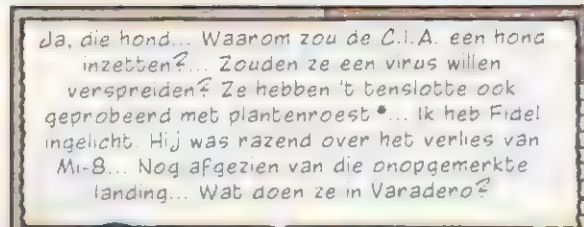 Ja, die hond... Waarom zou de C.I.A. een hond
inzetten?... Zouden ze een virus willen
verspreiden? Ze hebben 't tenslotte ook
geprobeerd met plantenroest *... Ik heb Fidel
ingelicht. Hij was razend over het verlies van
Mi-8... Nog afgezien van die onopgemerkte
landing... Wat doen ze in Varadero?